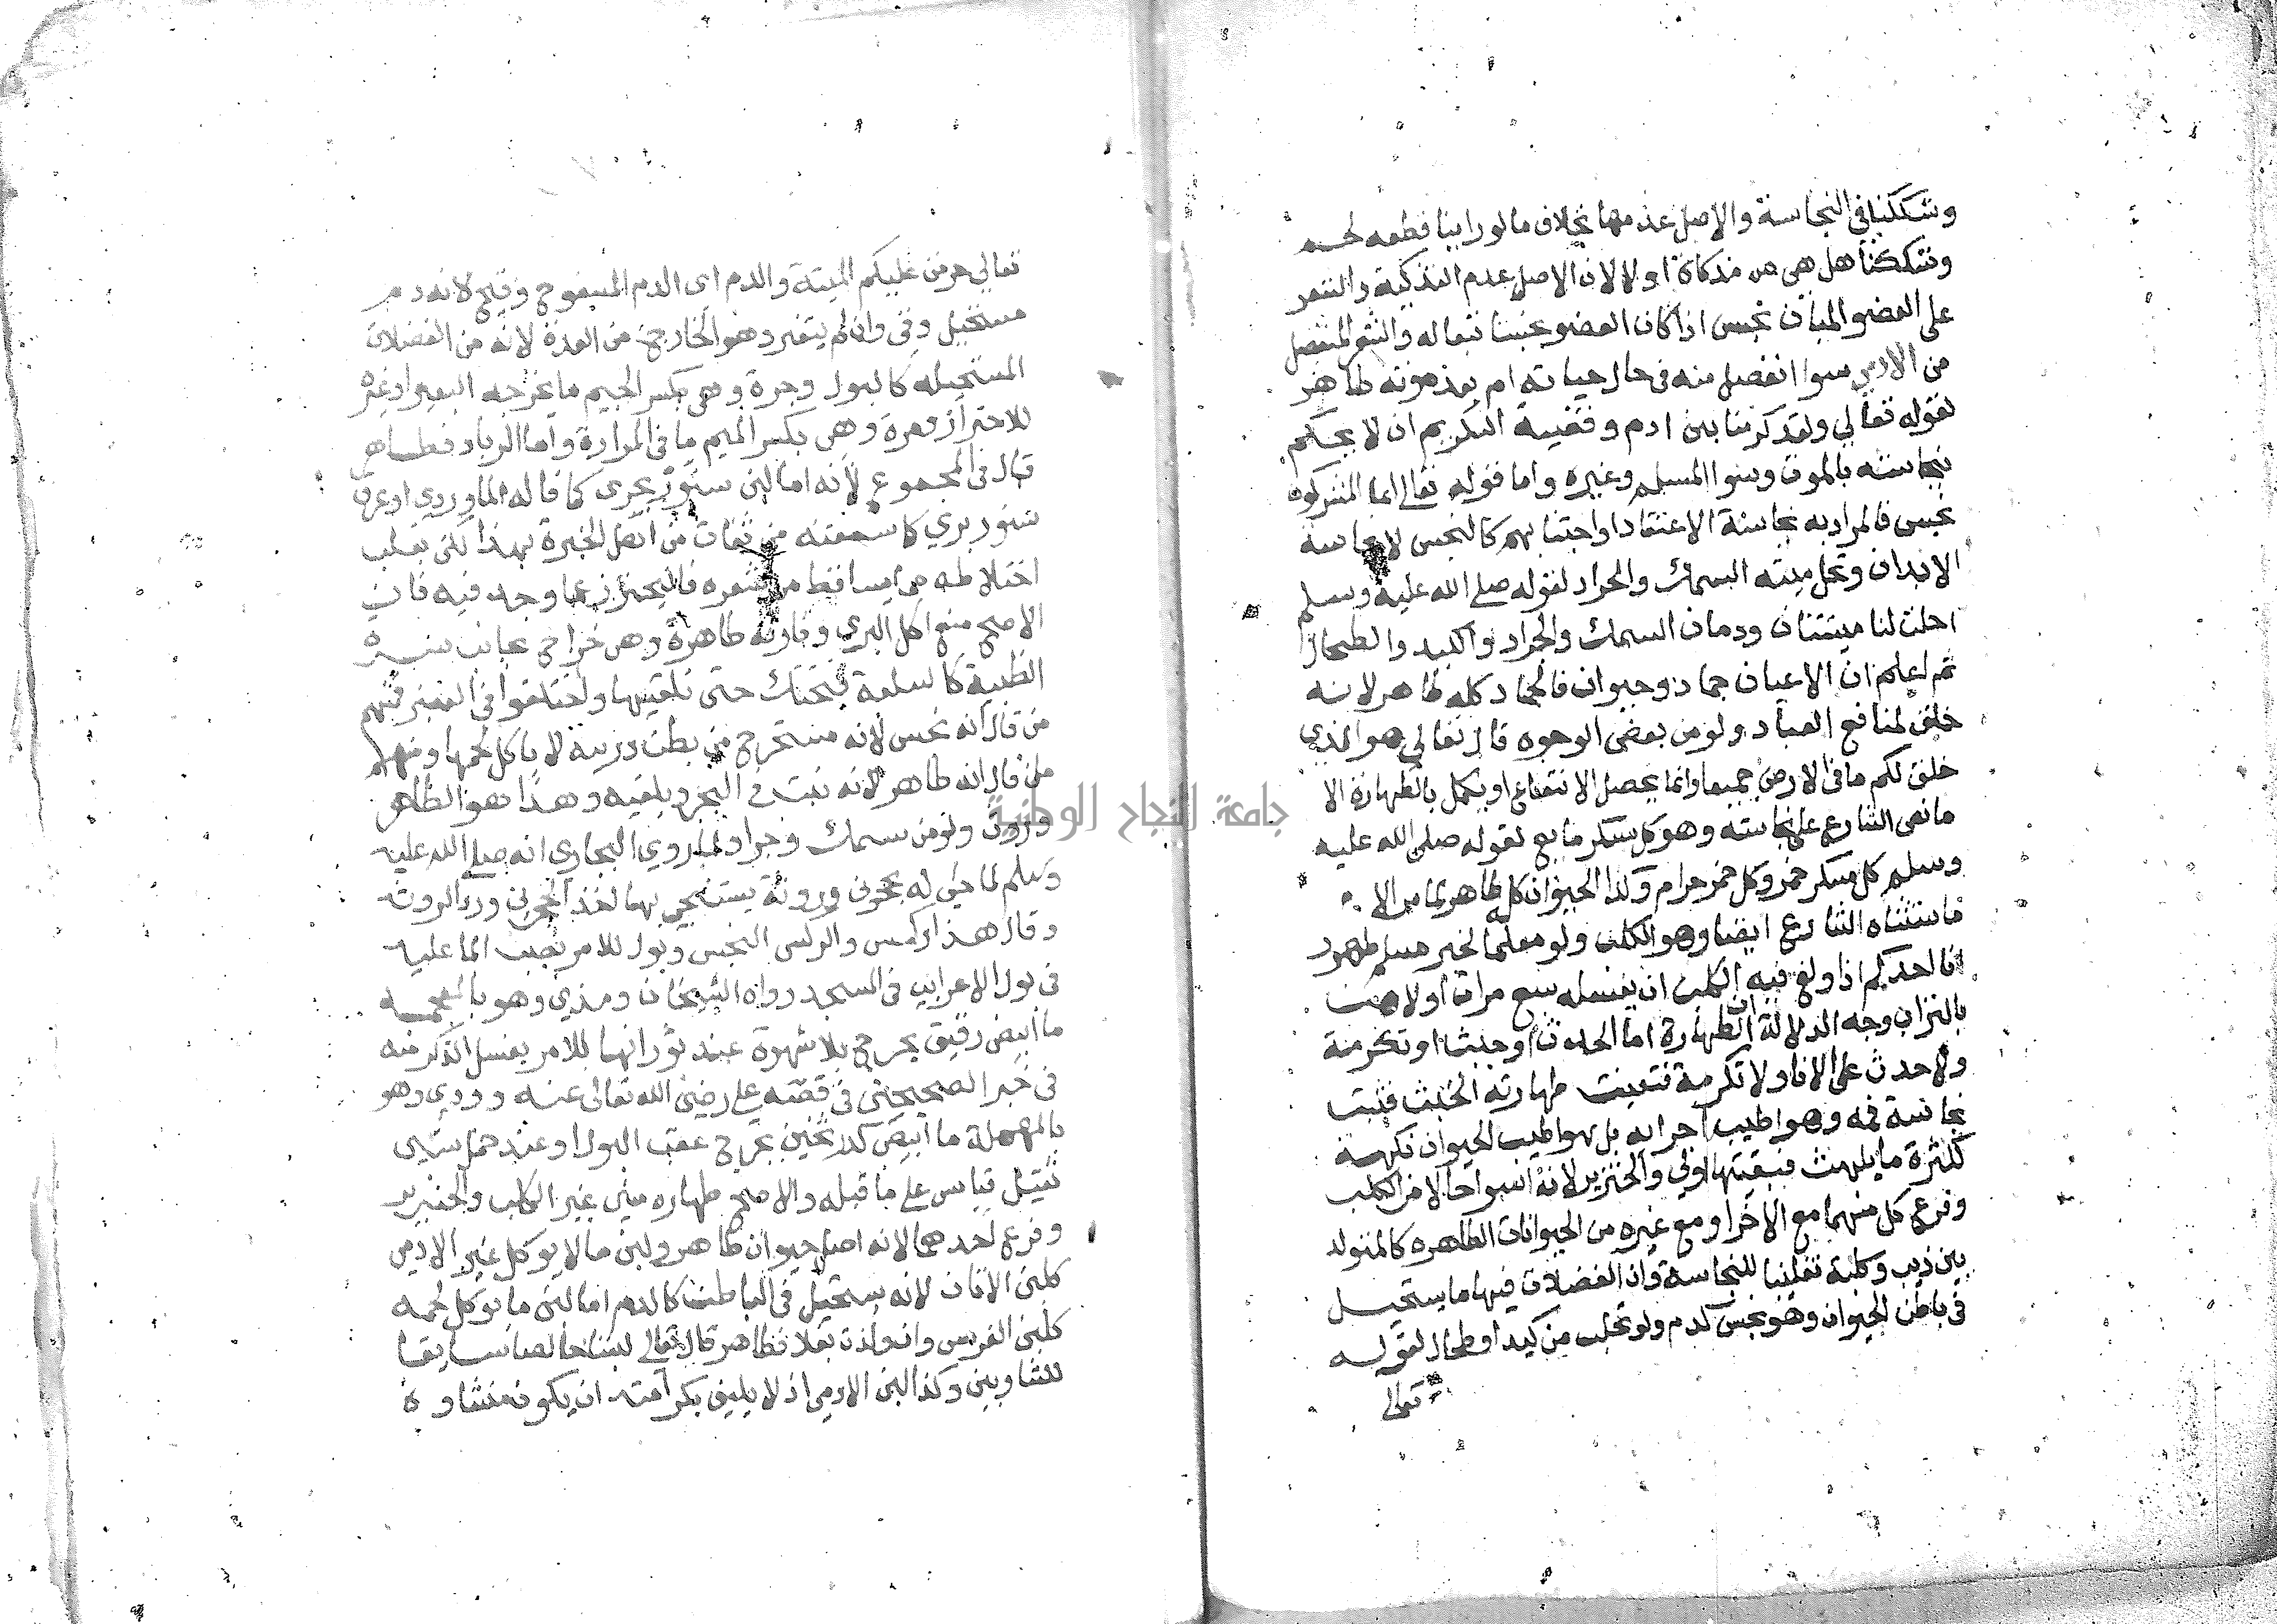 وشككنا في النجاسة والاصل عدمها بخلاف ما لو راينا قطعه لحم
وشككنا هل هي من مذكاة اولا لان الاصل عدم التذكية والشعر
على العضو المبان نجس اذا كان العضو نجسا تبعا له والشعر المنفصل
من الادمي سوا انفصل منه في حال حياته ام بعد موته طاهر
لقوله تعالي ولقد كرمنا بني ادم وقضية التكريم ان لا يحكم
بنجاسته بالموت وسوا المسلم وغيره واما قوله تعالي انما المشركون
نجس فالمراد به نجاسة الاعتقاد او اجتنابهم كالنجس لا نجاسة
الابدان وتحل ميته السمك والجراد لقوله صلي الله عليه وسلم
احلت لنا ميتتان ودمان السمك والجراد والكبد والطحال
ثم اعلم ان الاعيان جماد وحيوان فالجماد كله طاهر لانه
خلق لمنافع العباد ولو من بعض الوجوه قال تعالي هو الذي
خلق لكم ما في الارض جميعا وانما يحصل الانتفاع او يكمل بالطهارة الا
ما نص الشارع على نجاسته وهو كل مسكر مايع لقوله صلى الله عليه
وسلم كل مسكر خمر وكل خمر حرام وكذا الحيوان كله طاهر لما مر الا
ما ستثناه الشارع ايضا وهو الكلب ولو معلما لخبر مسلم طهور
انا احدكم اذا ولغ فيه الكلب ان يغسله سبع مرات اولاهن
بالتراب وجه الدلالة ان الطهارة اما لحدث او خبث او تكرمة
ولا حدث على الانا ولا تكرمة فتعينت طهارته الخبث فثبت
نجاسة فمه وهو اطيب اجزايه بل هو اطيب الحيوان نكهة
لكثرة ما يلهث فبقيتها اولي والخنزير لانه اسوا حالا من الكلب
وفرع كل منهما مع الاخر او مع غيره من الحيوانات الطاهره كالمتولد
بين ذيب وكلبة تغليبا للنجاسة وان الفضلات فيها ما يستحيل
في باطن الحيوان وهو نجس كدم ولو تحلب من كبد او طحال لقوله
تعالي
تعالي حرمت عليكم الميتة والدم اي الدم المسفوح وقيح لانه دم
مستحيل وقي وان لم يتغير وهو الخارج من المعدة لانه من الفضلات
المستحيله كالبول وجرة وهي بكسر الجيم ما يخرجه البعير او غيره
للاجترار ومرة وهي بكسر الميم ما في المرارة واما الزباد فطاهر
قال في المجموع لانه اما لبن سنور بحري كما قاله الماوردي او عرق
سنور بري كما سمعته من ثقات من اهل الخبرة بهذا لكن يغلب
اختلاطه مما يتساقط من شعره فاليحترز عما وجد فيه فان
الاصح منع اكل البري وفارته طاهرة وهي خراج بجانب سرة
الظبية كالسلعة فتحتك حتى تلقيها واختلفوا في العنبر فمنهم
من قال انه نجس لانه مستخرج من بطن دويبة لا ياكل لحمها ومنهم
من قال انه طاهر لانه نبت في البحر ويلقيه وهذا هو الظاهر
وروث ولو من سمك وجراد لما روي البخاري انه صلي الله عليه
وسلم لما جي له بحجرين وروثة يستنجي بها اخذ الحجرين ورد الروثة
وقال هذا ركس والركس النجس وبول للامر بصب الما عليه
في بول الاعرابي في المسجد رواه الشيخان ومذي وهو بالمعجمه
ما ابيض رقيق يخرج بلا شهوة عند ثورانها للامر بغسل الذكر منه
في خبر الصحيحين في قصته علي رضي الله تعالي عنه وودي وهو
بالمهملة ما ابيض كدر ثخين يخرج عقب البول او عند حمل شي
ثقيل قياس علي ما قبله والاصح طهاره مني غير الكلب والخنزير
وفرع احدهما لانه اصل حيوان طاهر ولبن ما لا يوكل غير الادمي
كلبن الاتان لانه يستحيل في الباطن كالدم اما لبن ما يوكل لحمه
كلبن الفرس وان ولدت بغلا فطاهر قال تعالي لبنا خالصا سايغا
للشاربين وكذا لبن الادمي اذ لا يليق بكرامته ان يكون منشاوه
جامعة النجاح الوطنية